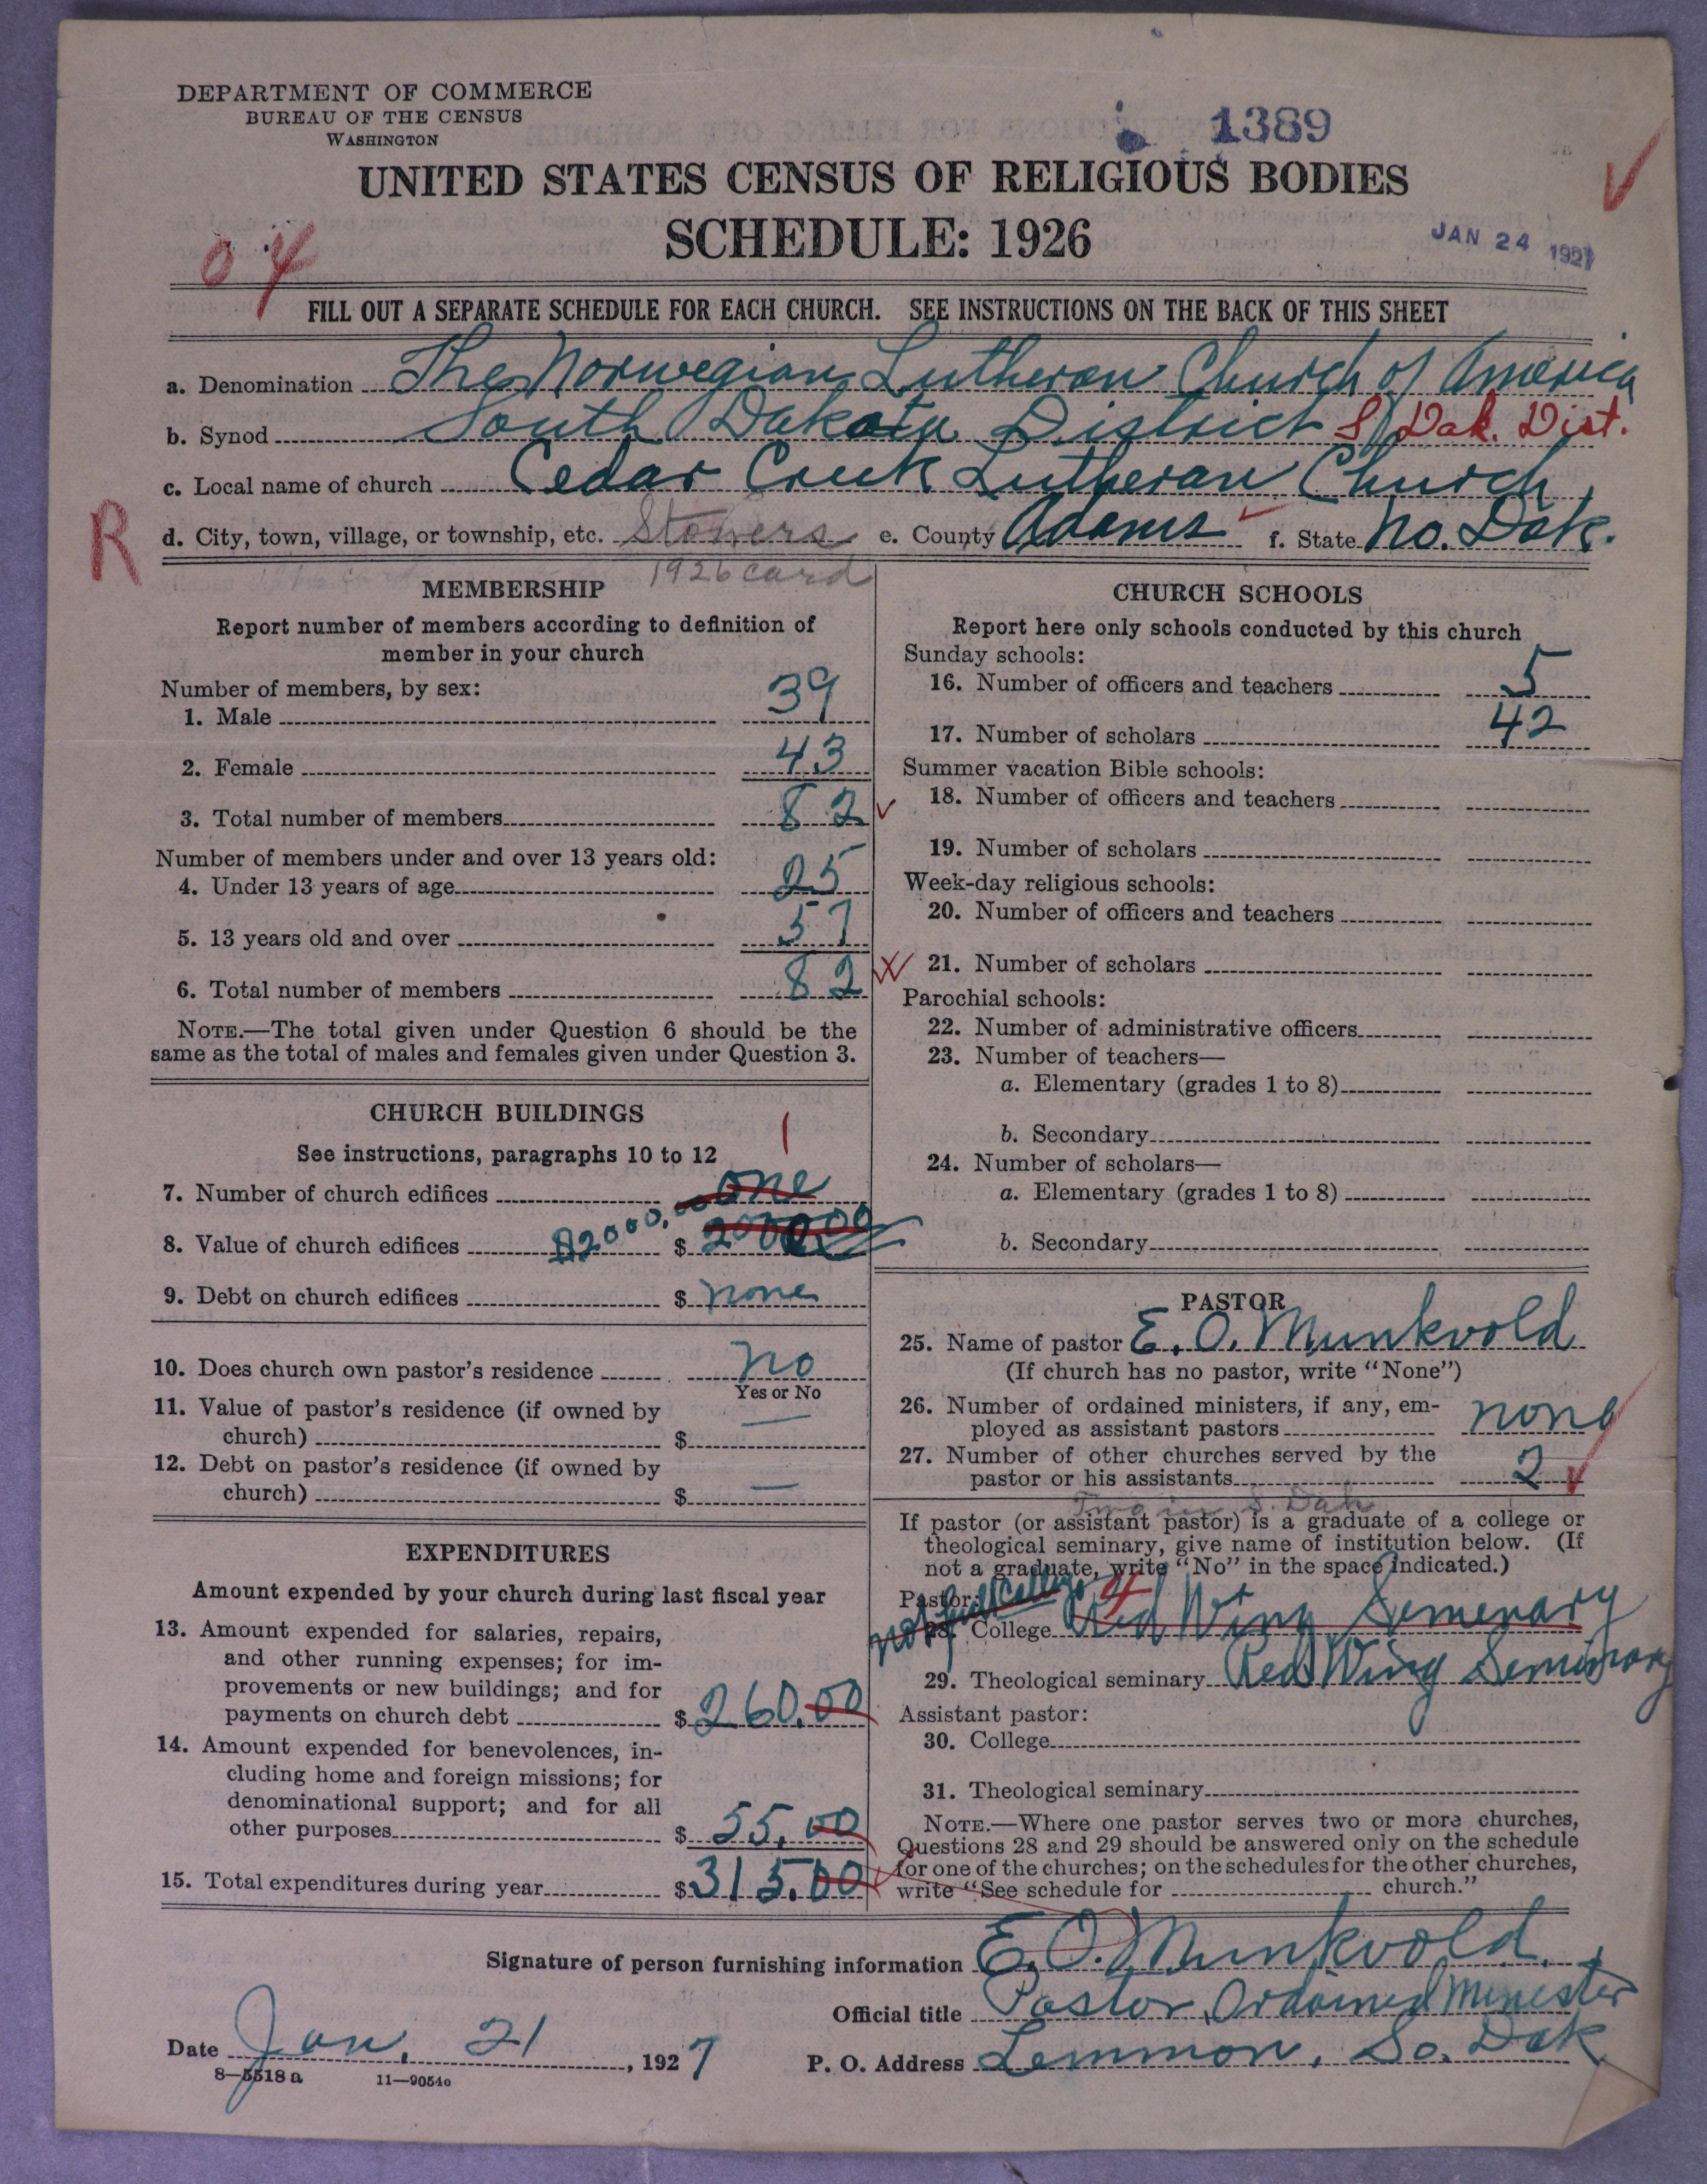 DEPARTMENT OF COMMERCE
BUREAU OF THE CENSUS
WASHINGTON
1389
UNITED STATES CENSUS OF RELIGIOUS BODIES
SCHEDULE: 1926
JAN 24 1927
04
FILL OUT A SEPARATE SCHEDULE FOR EACH CHURCH. SEE INSTRUCTIONS ON THE BACK OF THIS SHEET
a. Denomination The Norwegian Lutheran Church of America
b. Synod South Dakota District S Dak. Dist.
c. Local name of church Cedar Creek Lutheran Church
R
d. City, town, village, or township, etc. Stowers e. County Adams f. State No. Dak.
1926 card
MEMBERSHIP
Report number of members according to definition of
member in your church
Number of members, by sex:
1. Male 39
2. Female 43
3. Total number of members 82
Number of members under and over 13 years old:
4. Under 13 years of age 25
5. 13 years old and over 57
6. Total number of members 82
NOTE.—The total given under Question 6 should be the
same as the total of males and females given under Question 3.
CHURCH BUILDINGS
See instructions, paragraphs 10 to 12
1
7. Number of church edifices one
8. Value of church edifices 2000.00 $ 2000.00
9. Debt on church edifices $ none
10. Does church own pastor's residence no
Yes or No
11. Value of pastor's residence (if owned by
church) $ —
12. Debt on pastor's residence (if owned by
church) $ —
EXPENDITURES
Amount expended by your church during last fiscal year
13. Amount expended for salaries, repairs,
and other running expenses; for im-
provements or new buildings; and for
payments on church debt $ 260.00
14. Amount expended for benevolences, in-
cluding home and foreign missions; for
denominational support; and for all
other purposes $ 55.00
15. Total expenditures during year $ 315.00
CHURCH SCHOOLS
Report here only schools conducted by this church
Sunday schools:
16. Number of officers and teachers 5
17. Number of scholars 42
Summer vacation Bible schools:
18. Number of officers and teachers
19. Number of scholars
Week-day religious schools:
20. Number of officers and teachers
21. Number of scholars
Parochial schools:
22. Number of administrative officers
23. Number of teachers—
a. Elementary (grades 1 to 8)
b. Secondary
24. Number of scholars—
a. Elementary (grades 1 to 8)
b. Secondary
PASTOR
25. Name of pastor E. O. Munkvold
(If church has no pastor, write "None")
26. Number of ordained ministers, if any, em-
ployed as assistant pastors none
27. Number of other churches served by the
pastor or his assistants 2
in S. Dak
If pastor (or assistant pastor) is a graduate of a college or
theological seminary, give name of institution below. (If
not a graduate, write "No" in the space indicated.)
Pastor: not full College 4
28. College Red Wing Semenary
29. Theological seminary Red Wing Seminary
Assistant pastor:
30. College
31. Theological seminary
NOTE.—Where one pastor serves two or more churches,
Questions 28 and 29 should be answered only on the schedule
for one of the churches; on the schedules for the other churches,
write "See schedule for church."
Signature of person furnishing information E. O. Munkvold
Official title Pastor, Ordained Minester
Date Jan. 21, 1927 P. O. Address Lemmon, So. Dak
8—5518 a 11—9054o